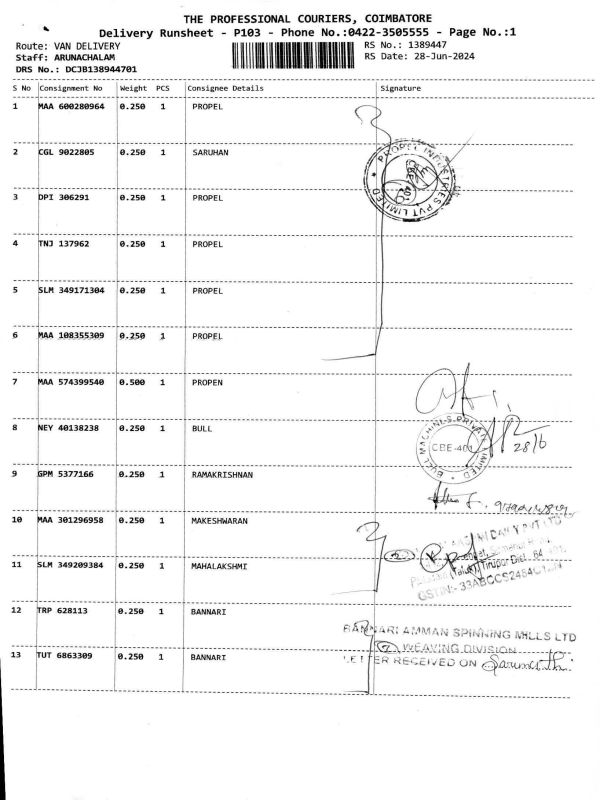 THE PROFESSIONAL COURIERS, COIMBATORE
Delivery Runsheet - P103 - Phone No.:0422-3505555 - Page No.:1
Route: VAN DELIVERY
RS No.: 1389447
Staff: ARUNACHALAM
RS Date: 28-Jun-2024
DRS No.: DCJB138944701
S No Consignment No Weight PCS Consignee Details Signature
1 MAA 600280964 0.250 1 PROPEL
2 CGL 9022805 0.250 1 SARUHAN
PROPEL INDUSTRIES PVT LIMITED
3 DPI 306291 0.250 1 PROPEL
4 TNJ 137962 0.250 1 PROPEL
5 SLM 349171304 0.250 1 PROPEL
6 MAA 108355309 0.250 1 PROPEL
7 MAA 574399540 0.500 1 PROPEN
8 NEY 40138238 0.250 1 BULL
BULL MACHINES PRIVATE LIMITED
CBE-401
28/6
9 GPM 5377166 0.250 1 RAMAKRISHNAN
10 MAA 301296958 0.250 1 MAKESHWARAN
11 SLM 349209384 0.250 1 MAHALAKSHMI
12 TRP 628113 0.250 1 BANNARI
BANNARI AMMAN SPINNING MILLS LTD
WEAVING DIVISION
13 TUT 6863309 0.250 1 BANNARI
LETTER RECEIVED ON